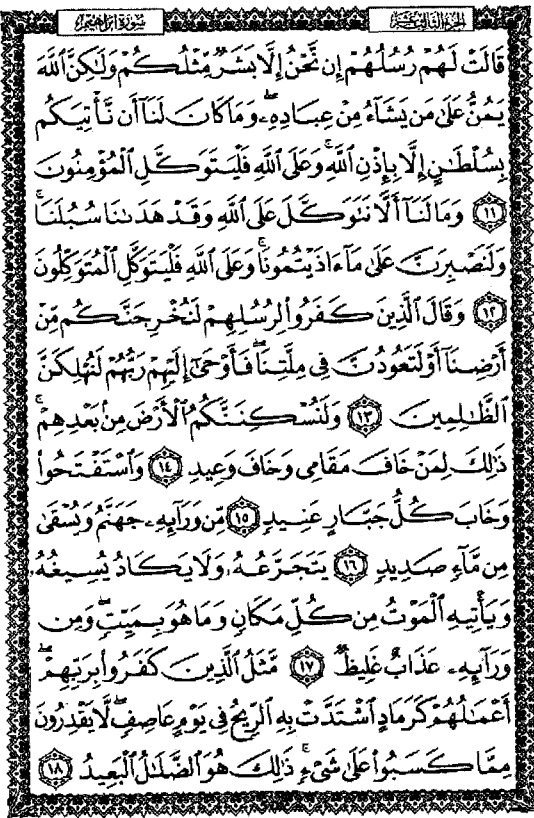 الجزء الثالث عشر
سورة إبراهيم
قَالَتْ لَهُمْ رُسُلُهُمْ إِن نَّحْنُ إِلَّا بَشَرٌ مِّثْلُكُمْ وَلَٰكِنَّ ٱللَّهَ
يَمُنُّ عَلَىٰ مَن يَشَآءُ مِنْ عِبَادِهِۦۖ وَمَا كَانَ لَنَآ أَن نَّأْتِيَكُم
بِسُلْطَٰنٍ إِلَّا بِإِذْنِ ٱللَّهِۚ وَعَلَى ٱللَّهِ فَلْيَتَوَكَّلِ ٱلْمُؤْمِنُونَ
١١ وَمَا لَنَآ أَلَّا نَتَوَكَّلَ عَلَى ٱللَّهِ وَقَدْ هَدَىٰنَا سُبُلَنَاۚ
وَلَنَصْبِرَنَّ عَلَىٰ مَآ ءَاذَيْتُمُونَاۚ وَعَلَى ٱللَّهِ فَلْيَتَوَكَّلِ ٱلْمُتَوَكِّلُونَ
١٢ وَقَالَ ٱلَّذِينَ كَفَرُوا۟ لِرُسُلِهِمْ لَنُخْرِجَنَّكُم مِّنْ
أَرْضِنَآ أَوْ لَتَعُودُنَّ فِى مِلَّتِنَاۖ فَأَوْحَىٰٓ إِلَيْهِمْ رَبُّهُمْ لَنُهْلِكَنَّ
ٱلظَّٰلِمِينَ ١٣ وَلَنُسْكِنَنَّكُمُ ٱلْأَرْضَ مِنۢ بَعْدِهِمْۚ
ذَٰلِكَ لِمَنْ خَافَ مَقَامِى وَخَافَ وَعِيدِ ١٤ وَٱسْتَفْتَحُوا۟
وَخَابَ كُلُّ جَبَّارٍ عَنِيدٍ ١٥ مِّن وَرَآئِهِۦ جَهَنَّمُ وَيُسْقَىٰ
مِن مَّآءٍ صَدِيدٍ ١٦ يَتَجَرَّعُهُۥ وَلَا يَكَادُ يُسِيغُهُۥ
وَيَأْتِيهِ ٱلْمَوْتُ مِن كُلِّ مَكَانٍ وَمَا هُوَ بِمَيِّتٍۖ وَمِن
وَرَآئِهِۦ عَذَابٌ غَلِيظٌ ١٧ مَّثَلُ ٱلَّذِينَ كَفَرُوا۟ بِرَبِّهِمْۖ
أَعْمَٰلُهُمْ كَرَمَادٍ ٱشْتَدَّتْ بِهِ ٱلرِّيحُ فِى يَوْمٍ عَاصِفٍۖ لَّا يَقْدِرُونَ
مِمَّا كَسَبُوا۟ عَلَىٰ شَىْءٍۚ ذَٰلِكَ هُوَ ٱلضَّلَٰلُ ٱلْبَعِيدُ ١٨